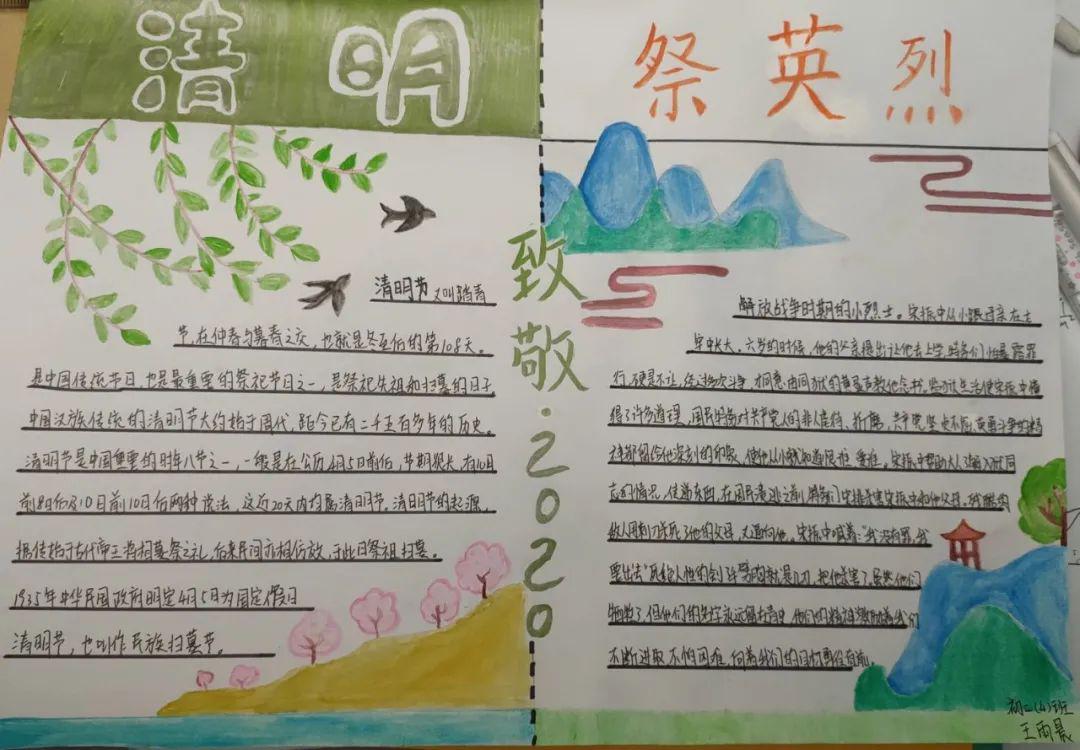 清明
祭英烈
致敬·2020
清明节 又叫踏青
节,在仲春与暮春之交,也就是冬至后的第108天。
是中国传统节日,也是最重要的祭祀节日之一,是祭祀先祖和扫墓的日子
中国汉族传统的清明节大约始于周代,距今已有二千五百多年的历史。
清明节是中国重要的时年八节之一,一般是在公历4月5日前后,节期很长,有10日
前8日后及10日前10日后两种说法,这近20天内均属清明节。清明节的起源,
据传始于古代帝王将相墓祭之礼,后来民间亦相仿效,于此日祭祖扫墓。
1935年中华民国政府明定4月5日为国定假日
清明节,也叫作民族扫墓节。
解放战争时期的小烈士。宋振中从小跟母亲在主
牢中长大。六岁的时候,他的父亲提出让他去上学,特务们怕暴露罪
行,硬是不让,经过多次斗争,才同意由同狱的黄显声教他念书。监狱生活使宋振中懂
得了许多道理,国民特务对共产党人的非人虐待、折磨,共产党坚贞不屈,英勇斗争的精
神都留给他深刻的印象,使他从小就知道
志的情况,传递东西,在国民溃逃之前,特务们
敌人用刺刀杀死了他的父母,又逼向他,宋振中喊着:“我没有罪,我
要出去”
牺牲了,但他们的
不断进取,不怕困难,向着我们的目标勇往直前。
初二(4)班
王雨晨